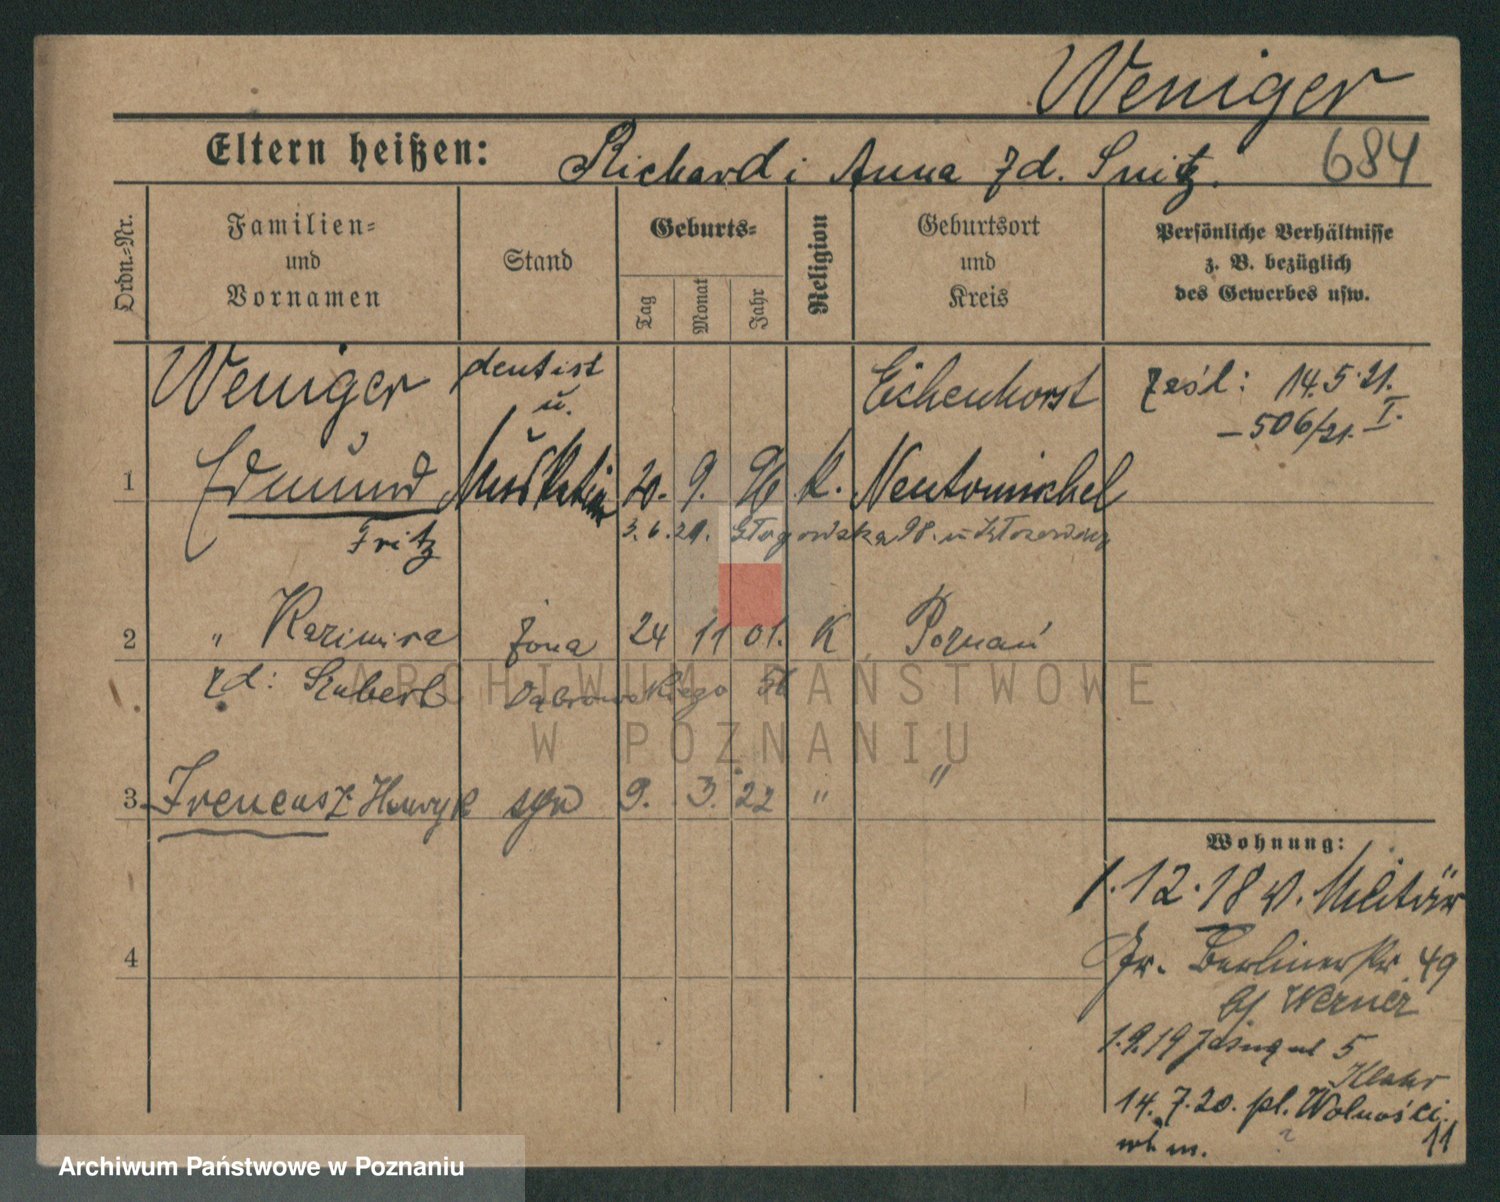 Weniger
Eltern heißen: Richard i Anna zd. Snitz. 684
Ordn.-Nr.
Familien- und Vornamen
Stand
Geburts-
Tag
Monat
Jahr
Religion
Geburtsort und Kreis
Persönliche Verhältnisse z. B. bezüglich des Gewerbes usw.
Weniger dentist Eichenhorst zaśl: 14.5.21.
u. – 506/21. I.
1 Edmund Musketier 20. 9. 96 K. Neutomischel
Fritz 3.6.21. Głogowska 98. u
2 " Kazimira żona 24 11 01. K Poznań
zd: Szubert Dąbrowskiego
3 Ireneusz Henryk syn 9. 3. 22 " "
Wohnung:
1.12.18 v. Militär
4 Gr. Berlinerstr 49
bj Werner
1.9.19 Jasna ul 5
14.7.20. pl. Wolności
11
ARCHIWUM PAŃSTWOWE
W POZNANIU
Archiwum Państwowe w Poznaniu